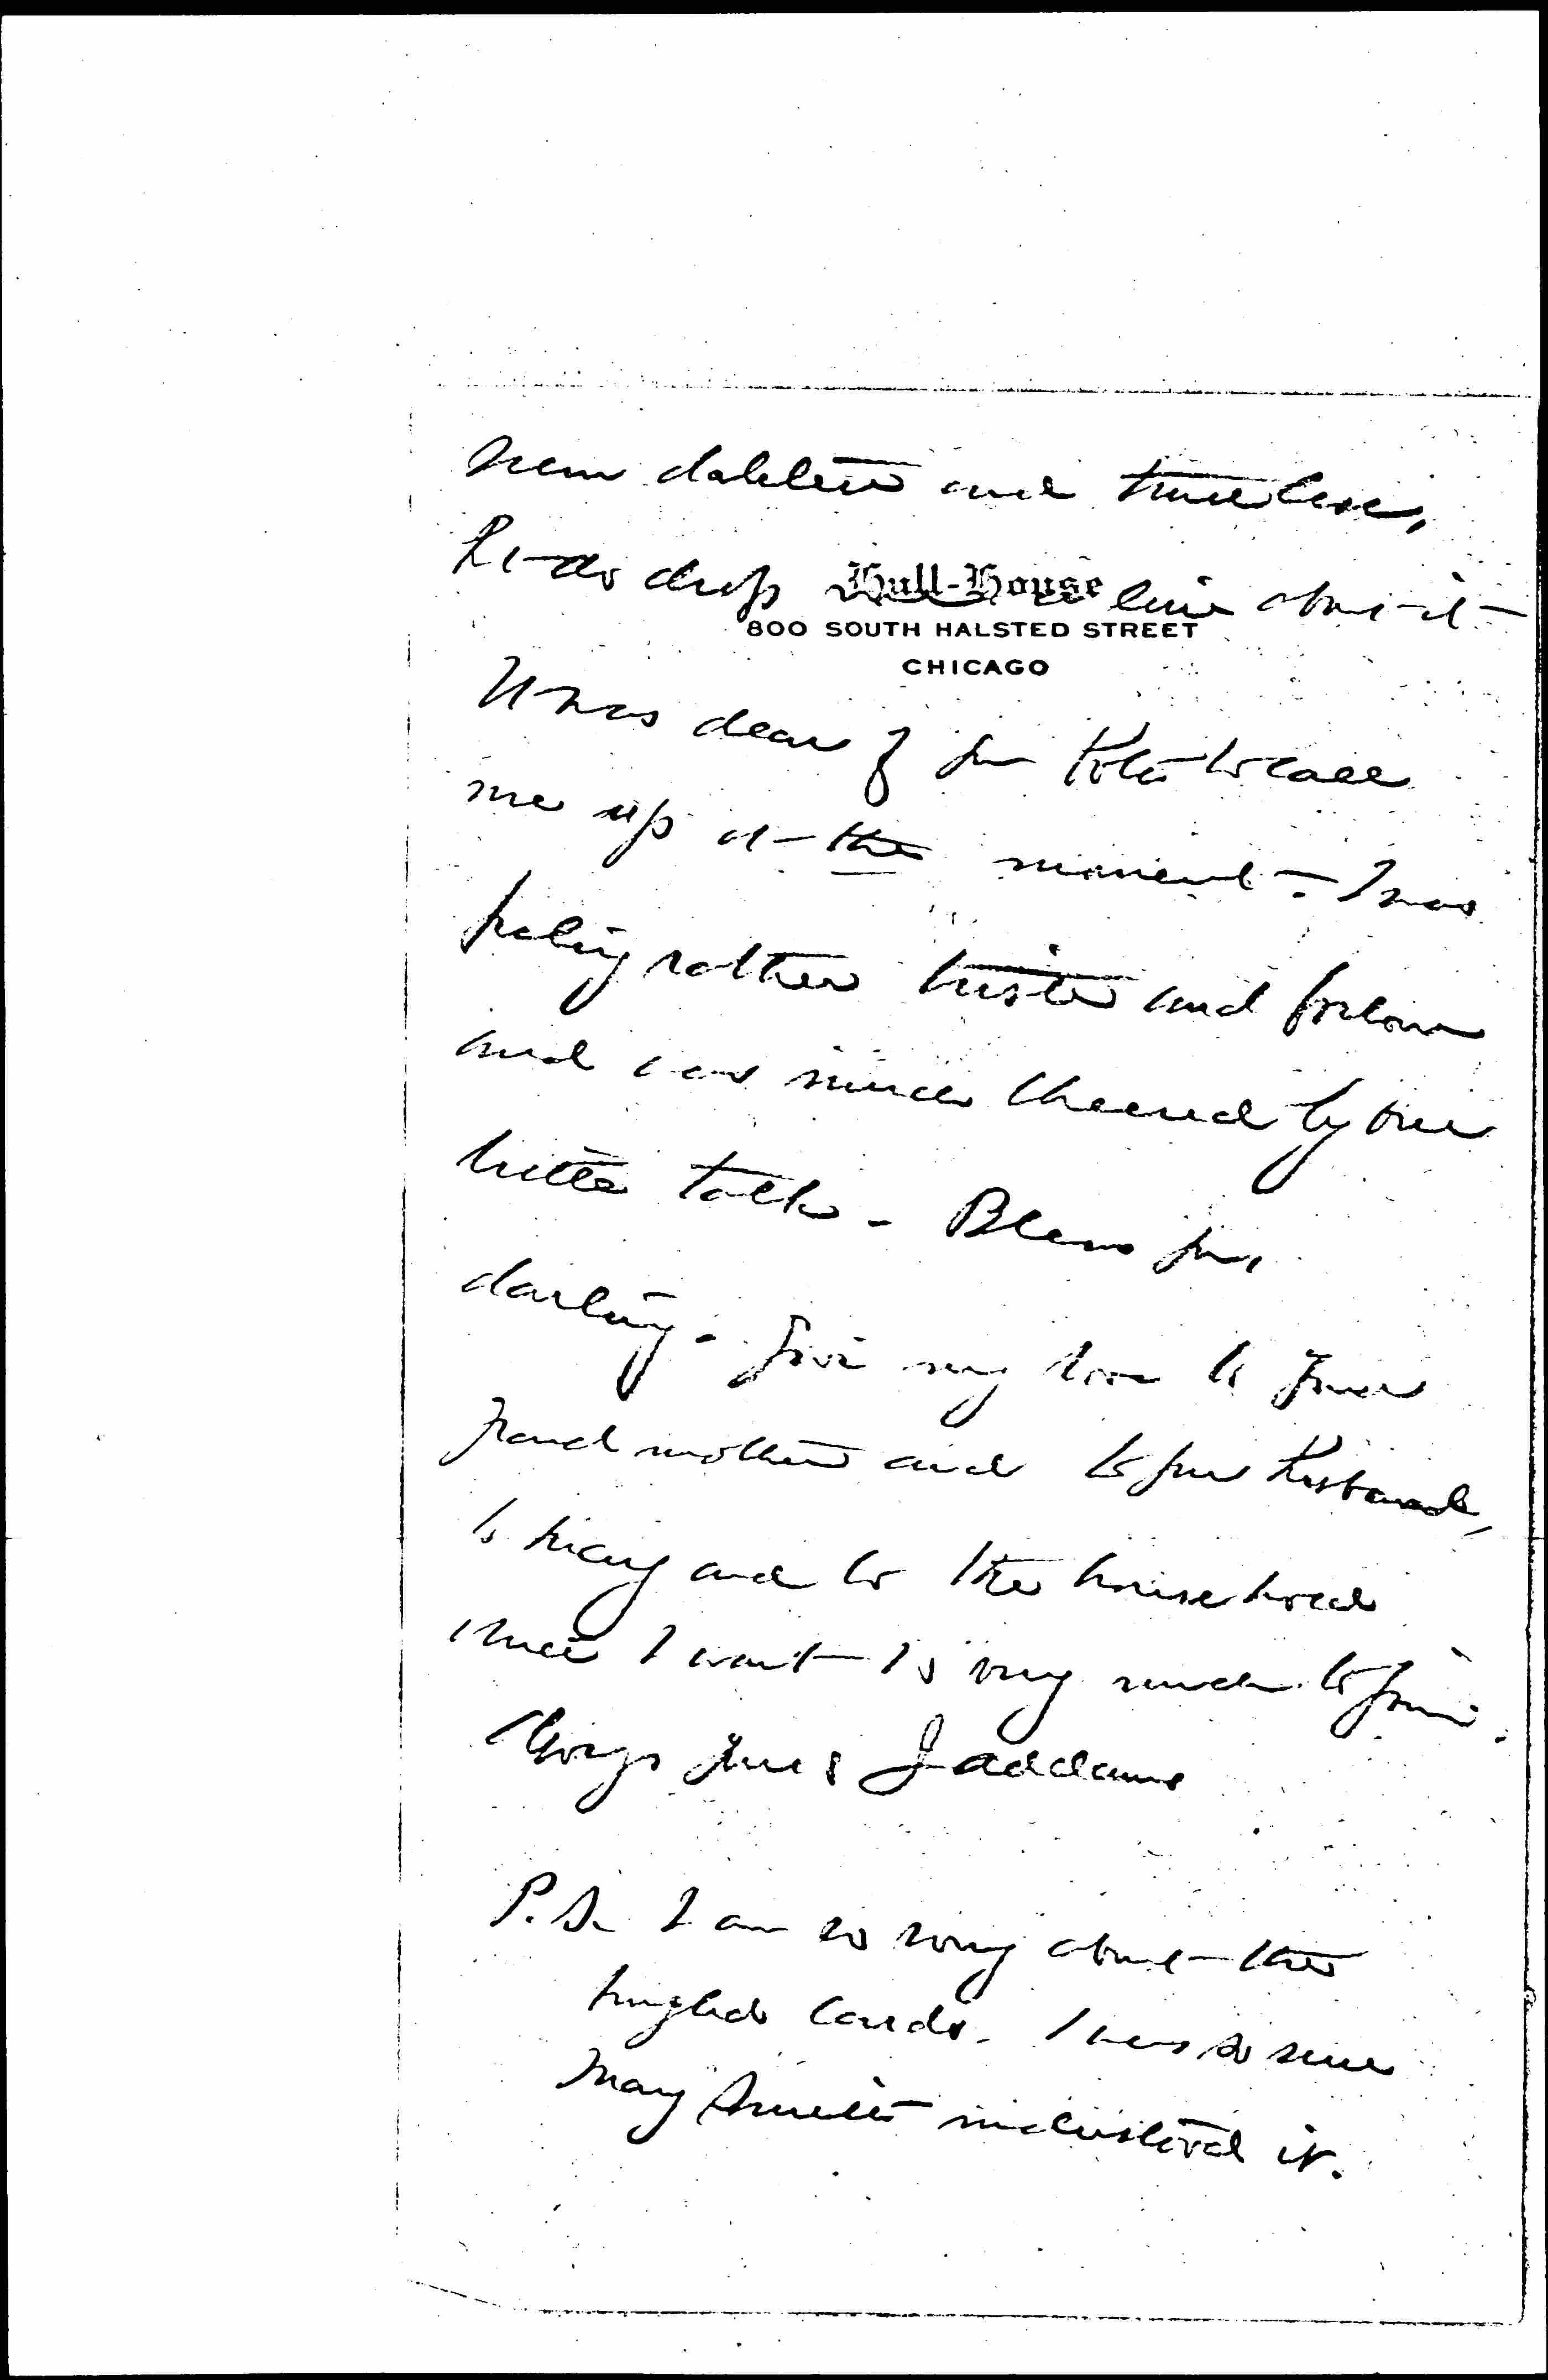 and
drop a line about it
Hull-House
800 SOUTH HALSTED STREET
CHICAGO
It was dear of you to call
me up at the moment - I was
feeling rather triste and forlorn
and was much cheered by our
little talk - Bless you,
darling. Give my love to your
grandmother and to your husband,
to Mary and to the household
I want so very much to join.
Always yours J Addams
P.S. I am so sorry about the
cards. I was so sure
Mary Smith understood it.